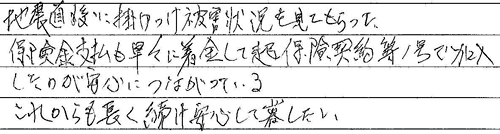 地震直後に掛けつけ被害状況も見てもらった、
保険金支払も早々に着金して 保険契約 1号で加入
したのが安心につながっている
これからも長く続け安心して暮したい